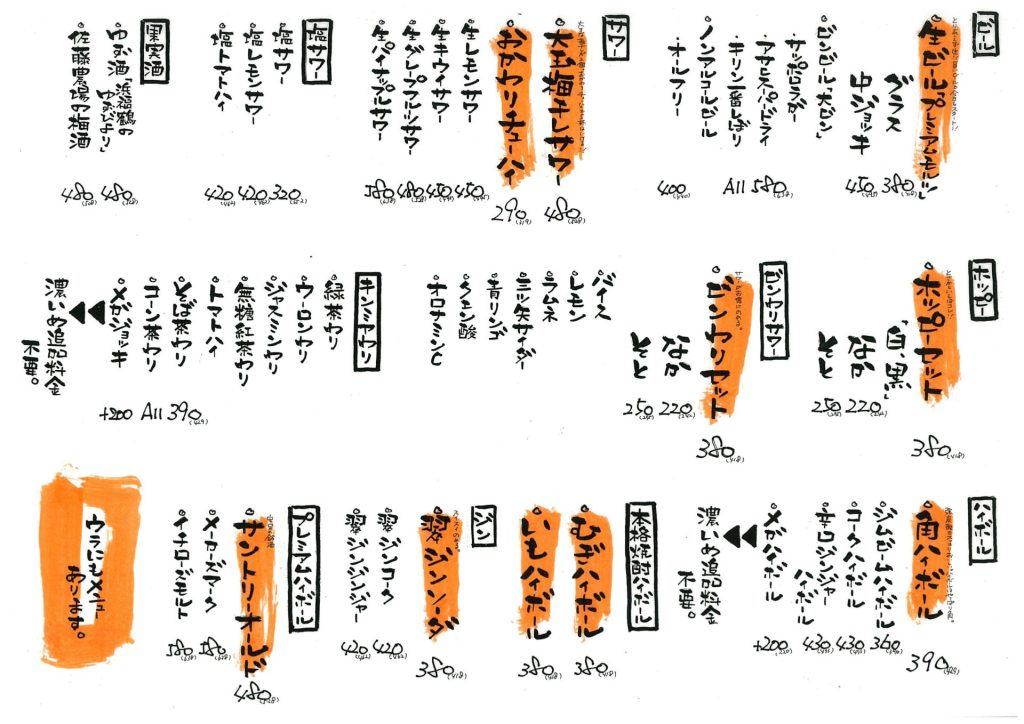 ビール
生ビールプレミアムモルツ
380(418)
グラス
中ジョッキ
450(495)
ビンビール「大ビン」
・サッポロラガー
・アサヒスーパードライ
・キリン一番しぼり
All 580(638)
・ノンアルコールビール
・オールフリー
400(440)
サワー
大玉梅干しサワー
480(528)
おかわりチューハイ
290(319)
生レモンサワー
450(495)
生キウイサワー
450(495)
生グレープフルーツサワー
480(528)
生パイナップルサワー
580(638)
塩サワー
塩サワー
320(352)
塩レモンサワー
420(462)
塩トマトハイ
420(462)
果実酒
ゆず酒「浜福鶴の
ゆずびより」
480(528)
佐藤農場の梅酒
480(528)
ホッピー
ホッピーセット
「白、黒」
380(418)
なか
220(242)
そと
250(275)
ビンワリサワー
ビンワリセット
380(418)
なか
220(242)
そと
250(275)
バイス
レモン
ラムネ
三ツ矢サイダー
青リンゴ
クエン酸
オロナミンC
キンミヤワリ
緑茶ワリ
ウーロンワリ
ジャスミンワリ
無糖紅茶ワリ
トマトハイ
そば茶ワリ
コーン茶ワリ
All 390(429)
メガジョッキ
+200
濃いめ追加料金
不要。
ハイボール
角ハイボール
390(429)
ジムビームハイボール
360(396)
コークハイボール
430(473)
辛口ジンジャー
ハイボール
430(473)
メガハイボール
+200(220)
濃いめ追加料金
不要。
本格焼酎ハイボール
むぎハイボール
380(418)
いもハイボール
380(418)
ジン
翠ジンソーダ
380(418)
翠ジンコーク
420(462)
翠ジンジンジャー
420(462)
プレミアムハイボール
サントリーオールド
480(528)
メーカーズマーク
580(638)
イチローズモルト
580(638)
ウラにもメニュー
あります。